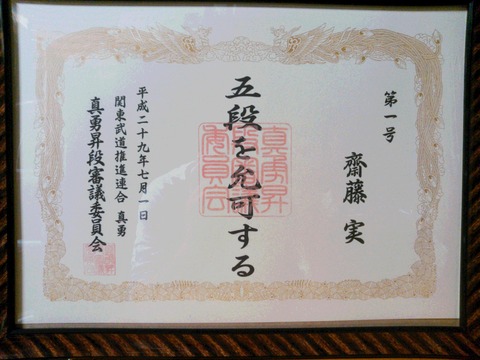 第一号
齋藤 実
五段を允可する
平成二十九年七月一日
関東武道推進連合 真勇
真勇昇段審議委員会
真勇昇
段審議
委員会